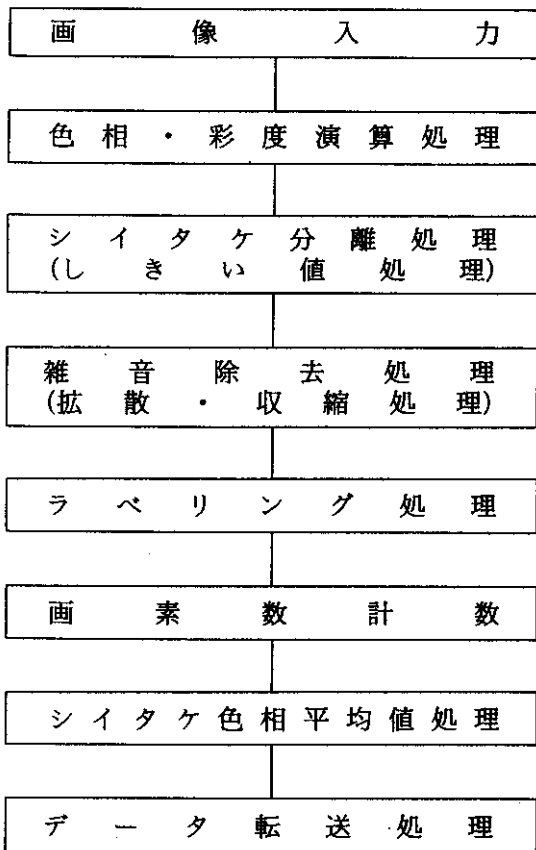 画像入力
色相・彩度演算処理
シイタケ分離処理
(しきい値処理)
雑音除去処理
(拡散・収縮処理)
ラベリング処理
画素数計数
シイタケ色相平均値処理
データ転送処理